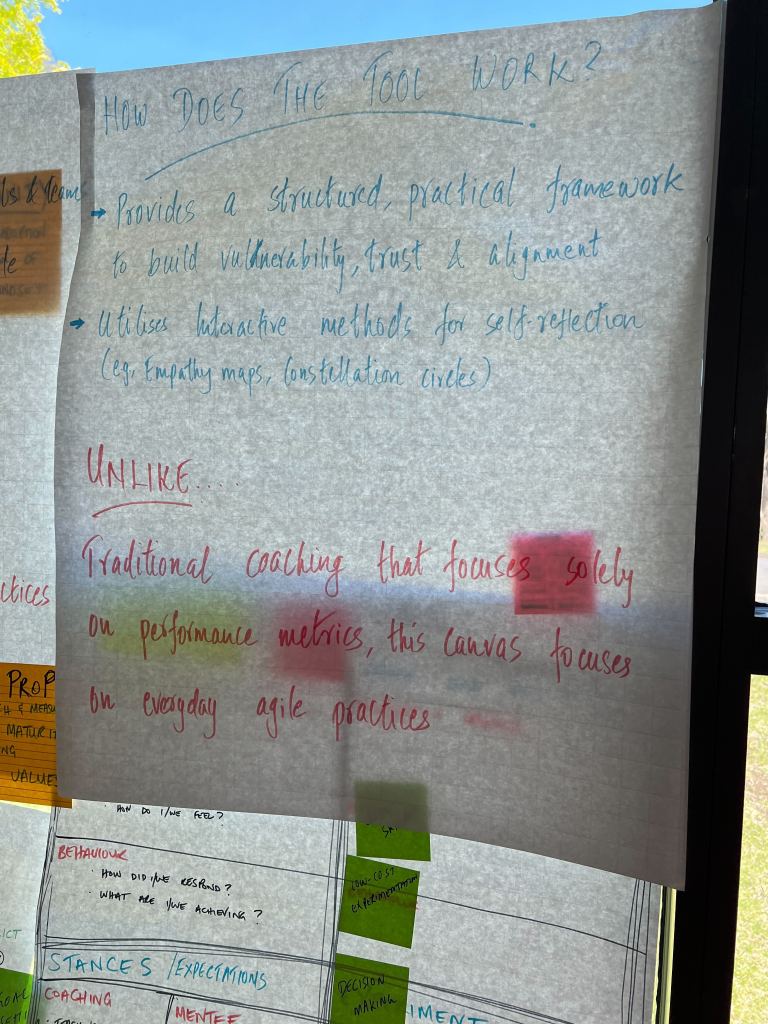 HOW DOES THE TOOL WORK?
→ Provides a structured, practical framework
to build vuldnerability, trust & alignment
→ Utilises Interactive methods for self-reflection
(eg. Empathy maps, Constellation circles)
UNLIKE....
Traditional coaching that focuses solely
on performance metrics, this canvas focuses
on everyday agile practices
& Team
ctices
PROP
H & MEASU
MATURIT
NG
VALUE
HOW DO I/WE FEEL?
BEHAVIOUR
· HOW DID I/WE RESPOND?
· WHAT ARE I/WE ACHIEVING?
LOW-COST
EXPERIMENTATION
STANCES / EXPECTATIONS
COACHING
MENTEE
DECISION
MAKING
IMENT
ICT
GOAL